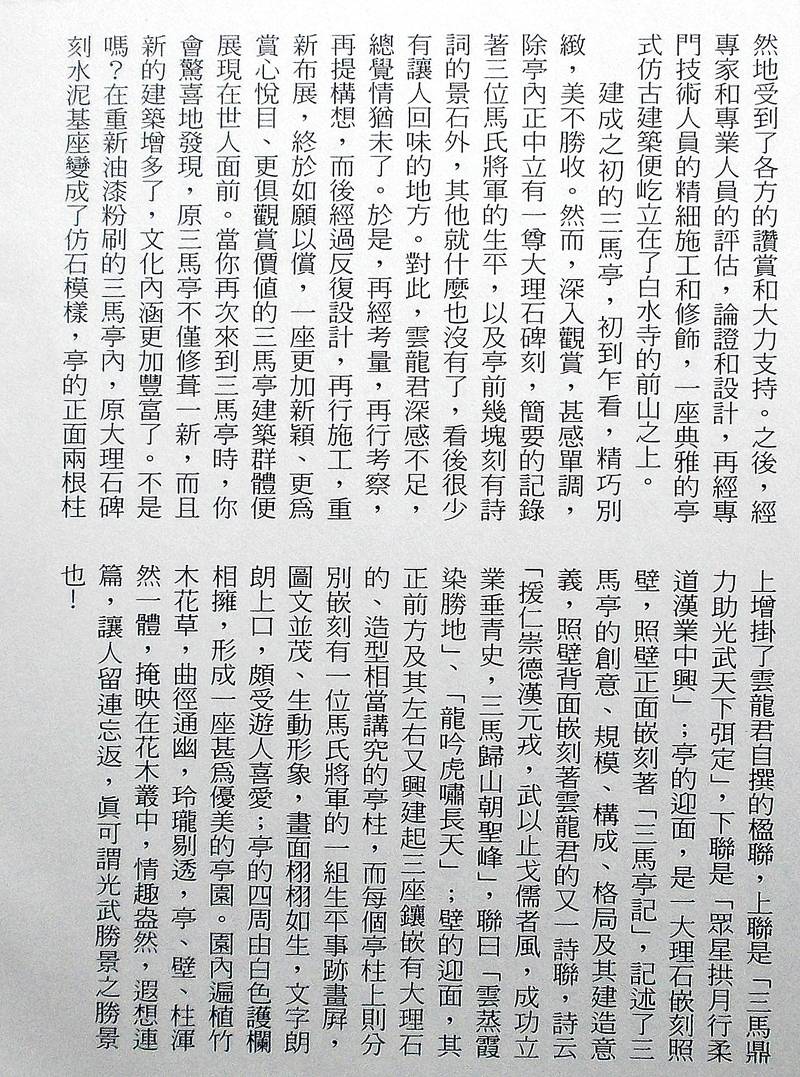 然地受到了各方的讚賞和大力支持。之後，經
專家和專業人員的評估，論證和設計，再經專
門技術人員的精細施工和修飾，一座典雅的亭
式仿古建築便屹立在了白水寺的前山之上。
建成之初的三馬亭，初到乍看，精巧別
緻，美不勝收。然而，深入觀賞，甚感單調，
除亭內正中立有一尊大理石碑刻，簡要的記錄
著三位馬氏將軍的生平，以及亭前幾塊刻有詩
詞的景石外，其他就什麼也沒有了，看後很少
有讓人回味的地方。對此，雲龍君深感不足，
總覺情猶未了。於是，再經考量，再行考察，
再提構想，而後經過反復設計，再行施工，重
新布展，終於如願以償，一座更加新穎、更爲
賞心悅目、更俱觀賞價値的三馬亭建築群體便
展現在世人面前。當你再次來到三馬亭時，你
會驚喜地發現，原三馬亭不僅修葺一新，而且
新的建築增多了，文化內涵更加豐富了。不是
嗎？在重新油漆粉刷的三馬亭內，原大理石碑
刻水泥基座變成了仿石模樣，亭的正面兩根柱
上增掛了雲龍君自撰的楹聯，上聯是「三馬鼎
力助光武天下弭定」，下聯是「眾星拱月行柔
道漢業中興」；亭的迎面，是一大理石嵌刻照
壁，照壁正面嵌刻著「三馬亭記」，記述了三
馬亭的創意、規模、構成、格局及其建造意
義，照壁背面嵌刻著雲龍君的又一詩聯，詩云
「援仁崇德漢元戎，武以止戈儒者風，成功立
業垂青史，三馬歸山朝聖峰」，聯曰「雲蒸霞
染勝地」、「龍吟虎嘯長天」；壁的迎面，其
正前方及其左右又興建起三座鑲嵌有大理石
的、造型相當講究的亭柱，而每個亭柱上則分
別嵌刻有一位馬氏將軍的一組生平事跡畫屛，
圖文並茂、生動形象，畫面栩栩如生，文字朗
朗上口，頗受遊人喜愛；亭的四周由白色護欄
相擁，形成一座甚爲優美的亭園。園內遍植竹
木花草，曲徑通幽，玲瓏剔透，亭、壁、柱渾
然一體，掩映在花木叢中，情趣盎然，遐想連
篇，讓人留連忘返，眞可謂光武勝景之勝景
也！